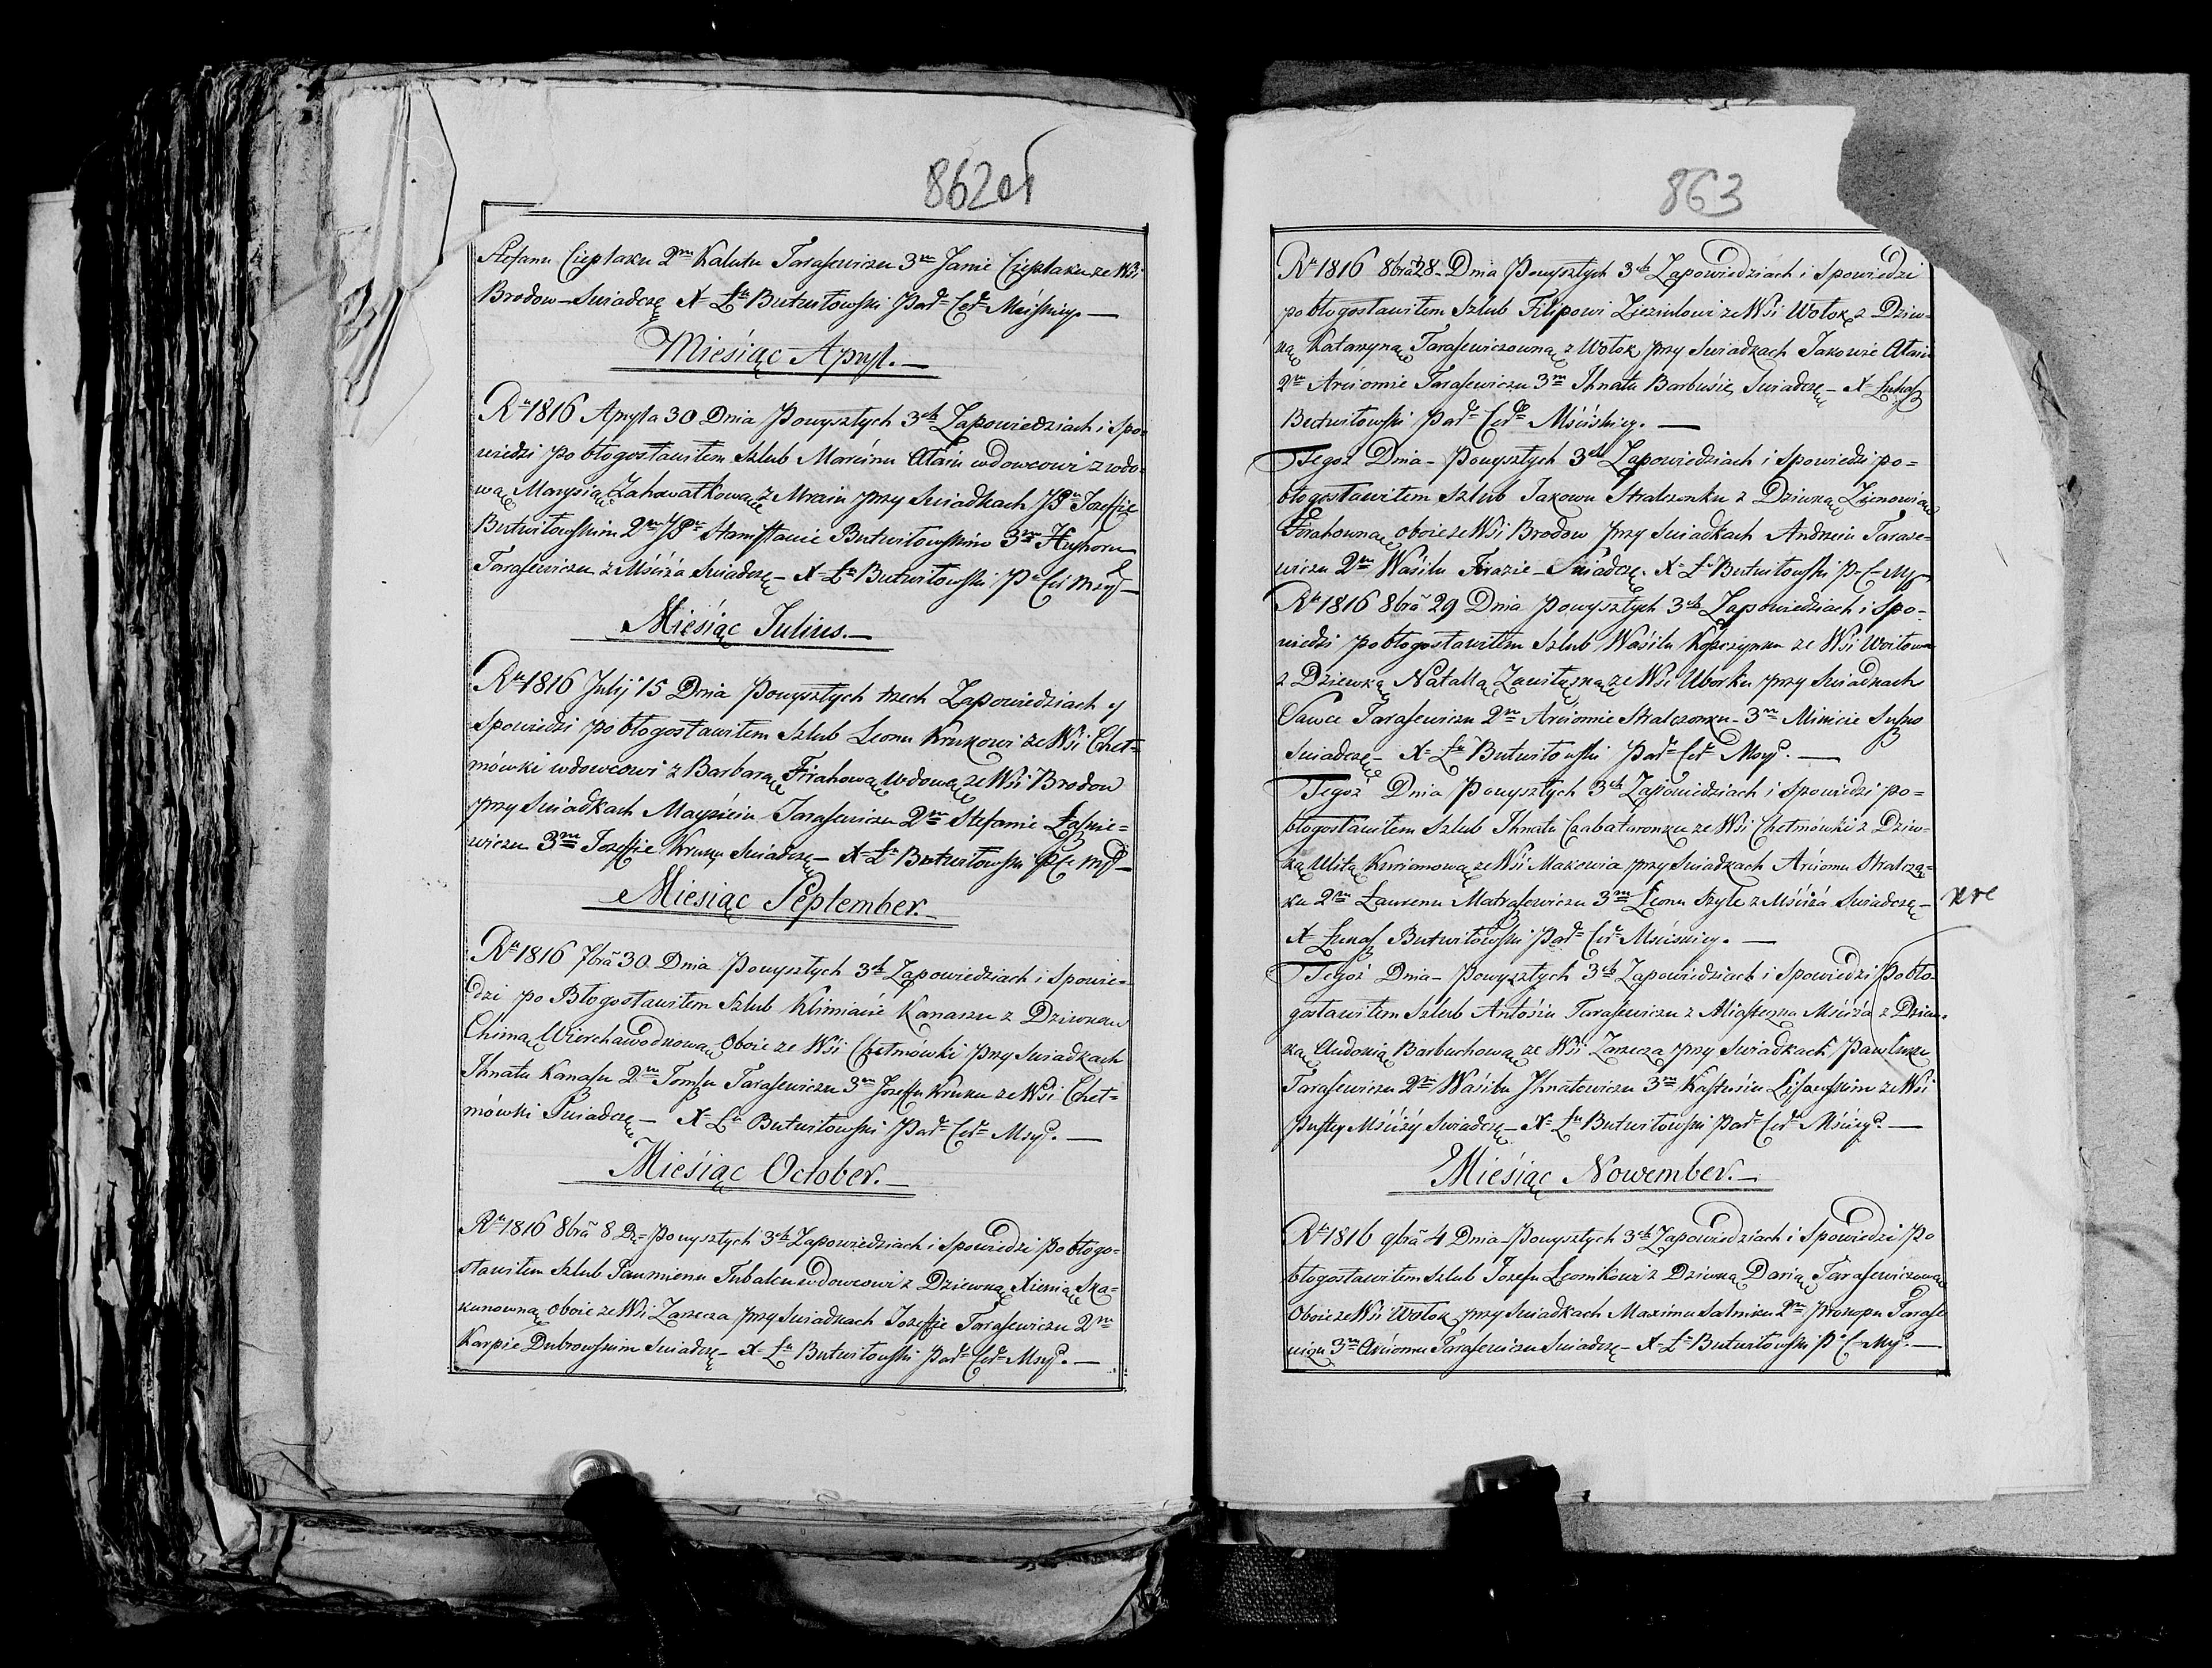 862об
Stefanu Cieplaku 2m Kalutu Tarasewiczu 3m Janie Cieplaku ze Wsi
Brodow – Swiadczę X Łu Butwiłowski Par Cer Mśćiskiey –
Miesiąc Apryl. –
Ru 1816 Apryla 30 Dnia Powyszłych 3ch Zapowiedziach i Spo=
wiedzi po błogosławiłem Szlub Marcinu Ataiu wdowcowi z wdo=
wą Marysią Zahawałkową z Mraiu przy Swiadkach JPu Jozeffie
Butwiłowskim 2m JPu Stanisławie Butwiłowskim 3m Hryhoru
Tarasewiczu z Mśćiża Swiadczę – X Łu Butwiłowski P Cer Msy –
Miesiąc Julius. –
Ru 1816 Julij 15 Dnia Powyszłych trzech Zapowiedziach y
Spowiedzi po błogosławiłem Szlub Leonu Krukowi ze Wsi Cheł=
mówki wdowcowi z Barbarą Firahową Wdową ze Wsi Brodow
przy Swiadkach Marysieiu Tarasewiczu 2m Stefanie Łasnie=
wiczu 3m Jozeffie Kruku Swiadczę – X Łu Butwiłowski P C Msy –
Miesiąc September. –
Ru 1816 7bra 30 Dnia Powyszłych 3ch Zapowiedziach i Spowie=
dzi po Błogosławiłem Szlub Klimiacie Kanaszu z Dziewkąu
Chimą Wierchawodkową Oboie ze Wsi Chełmówki przy Swiadkach
Ihnatu Kanasu 2m Tomsu Tarasewiczu 3m Jozeffu Kruku ze Wsi Cheł=
mówki Swiadczę – X Łu Butwiłowski Par Cer Msy. –
Miesiąc October. –
Ru 1816 8bra 8 D= Powyszłych 3ch Zapowiedziach i Spowiedzi po błogo=
sławiłem Szlub Parmienu Tubalcu wdowcowi z Dziewką Xienią Ska=
kunowną oboie ze Wsi Zarzecza przy Swiadkach Jozeffie Tarasewiczu 2m
Karpie Dubrowskim Swiadczę – X Łu Butwiłowski Par Cer Msy. –
863
Ru 1816 8bra 28 – Dnia Powyszłych 3ch Zapowiedziach i Spowiedzi
po błogosławiłem Szlub Filipowi Zieziulowi ze Wsi Wołok z Dziew=
ką Katarzyną Tarasewiczowną z Wołok przy Swiadkach Jakowie Ataiu
2m Arciomie Tarasewiczu 3m Ihnatu Barbusie, Swiadczę – X Łukasz
Butwiłowski Par Cer Mśćiskiey. –
Tegoż Dnia – Powyszłych 3ch Zapowiedziach i Spowiedzi po=
błogosławiłem Szlub Jakowu Stralczonku z Dziewką Zienowią
Firahowną oboie ze Wsi Brodow przy Swiadkach Andrzeiu Tarase=
wiczu 2m Wasilu Firazie – Swiadczę. X Łu Butwiłowski P C My –
Ru 1816 8bra 29 Dnia Powyszłych 3ch Zapowiedziach i Spo=
wiedzi po błogosławiłem Szlub Wasilu Korzczynku ze Wsi Woitowa
z Dziewką Natallą Zawiłąską ze Wsi Uborku przy Swiadkach
Sawce Tarasewiczu 2m Arciomie Stralczonku – 3m Mikicie Susko
Swiadczę – X Łu Butwiłowski Par Cer Msy. –
Tegoż Dnia Powyszłych 3ch Zapowiedziach i Spowiedzi po=
błogosławiłem Szlub Ihnatu Czabataronku ze Wsi Chełmówki z Dziew=
ką Ulitą Kuryanową ze Wsi Makowia przy Swiadkach Arciomu Stralczą=
ku 2m Ławrenu Matrasewiczu 3m Leonu Szyle z Mśćiża Swiadczę –
X Łukasz Butwiłowski Par Cer Mśćiskiey. –
Tegoż Dnia – Powyszłych 3ch Zapowiedziach i Spowiedzi po bło=
gosławiłem Szlub Antosiu Tarasewiczu z Miasteczka Mśćiża z Dziew=
ką Audokią Barbuchową ze Wsi Zarzecza przy Swiadkach Pawluku
Tarasewiczu 2m Wasilu Ihnatowiczu 3m Kastusiu Lisowskim ze Wsi
Pustey Mśćiży Swiadczę – X Łu Butwiłowski Par Cer Mśćiey. –
Miesiąc Nowember. –
Ru 1816 9bra 4 Dnia – Powyszłych 3ch Zapowiedziach i Spowiedzi Po
błogosławiłem Szlub Jozefu Leonikowi z Dziewką Darią Tarasewiczową
Oboie ze Wsi Wołok przy Swiadkach Maximu Salniku 2m Prokopu Tarase
wiczu 3m Arciomu Tarasewiczu Swiadczę – X Łu Butwiłowski P C My. –